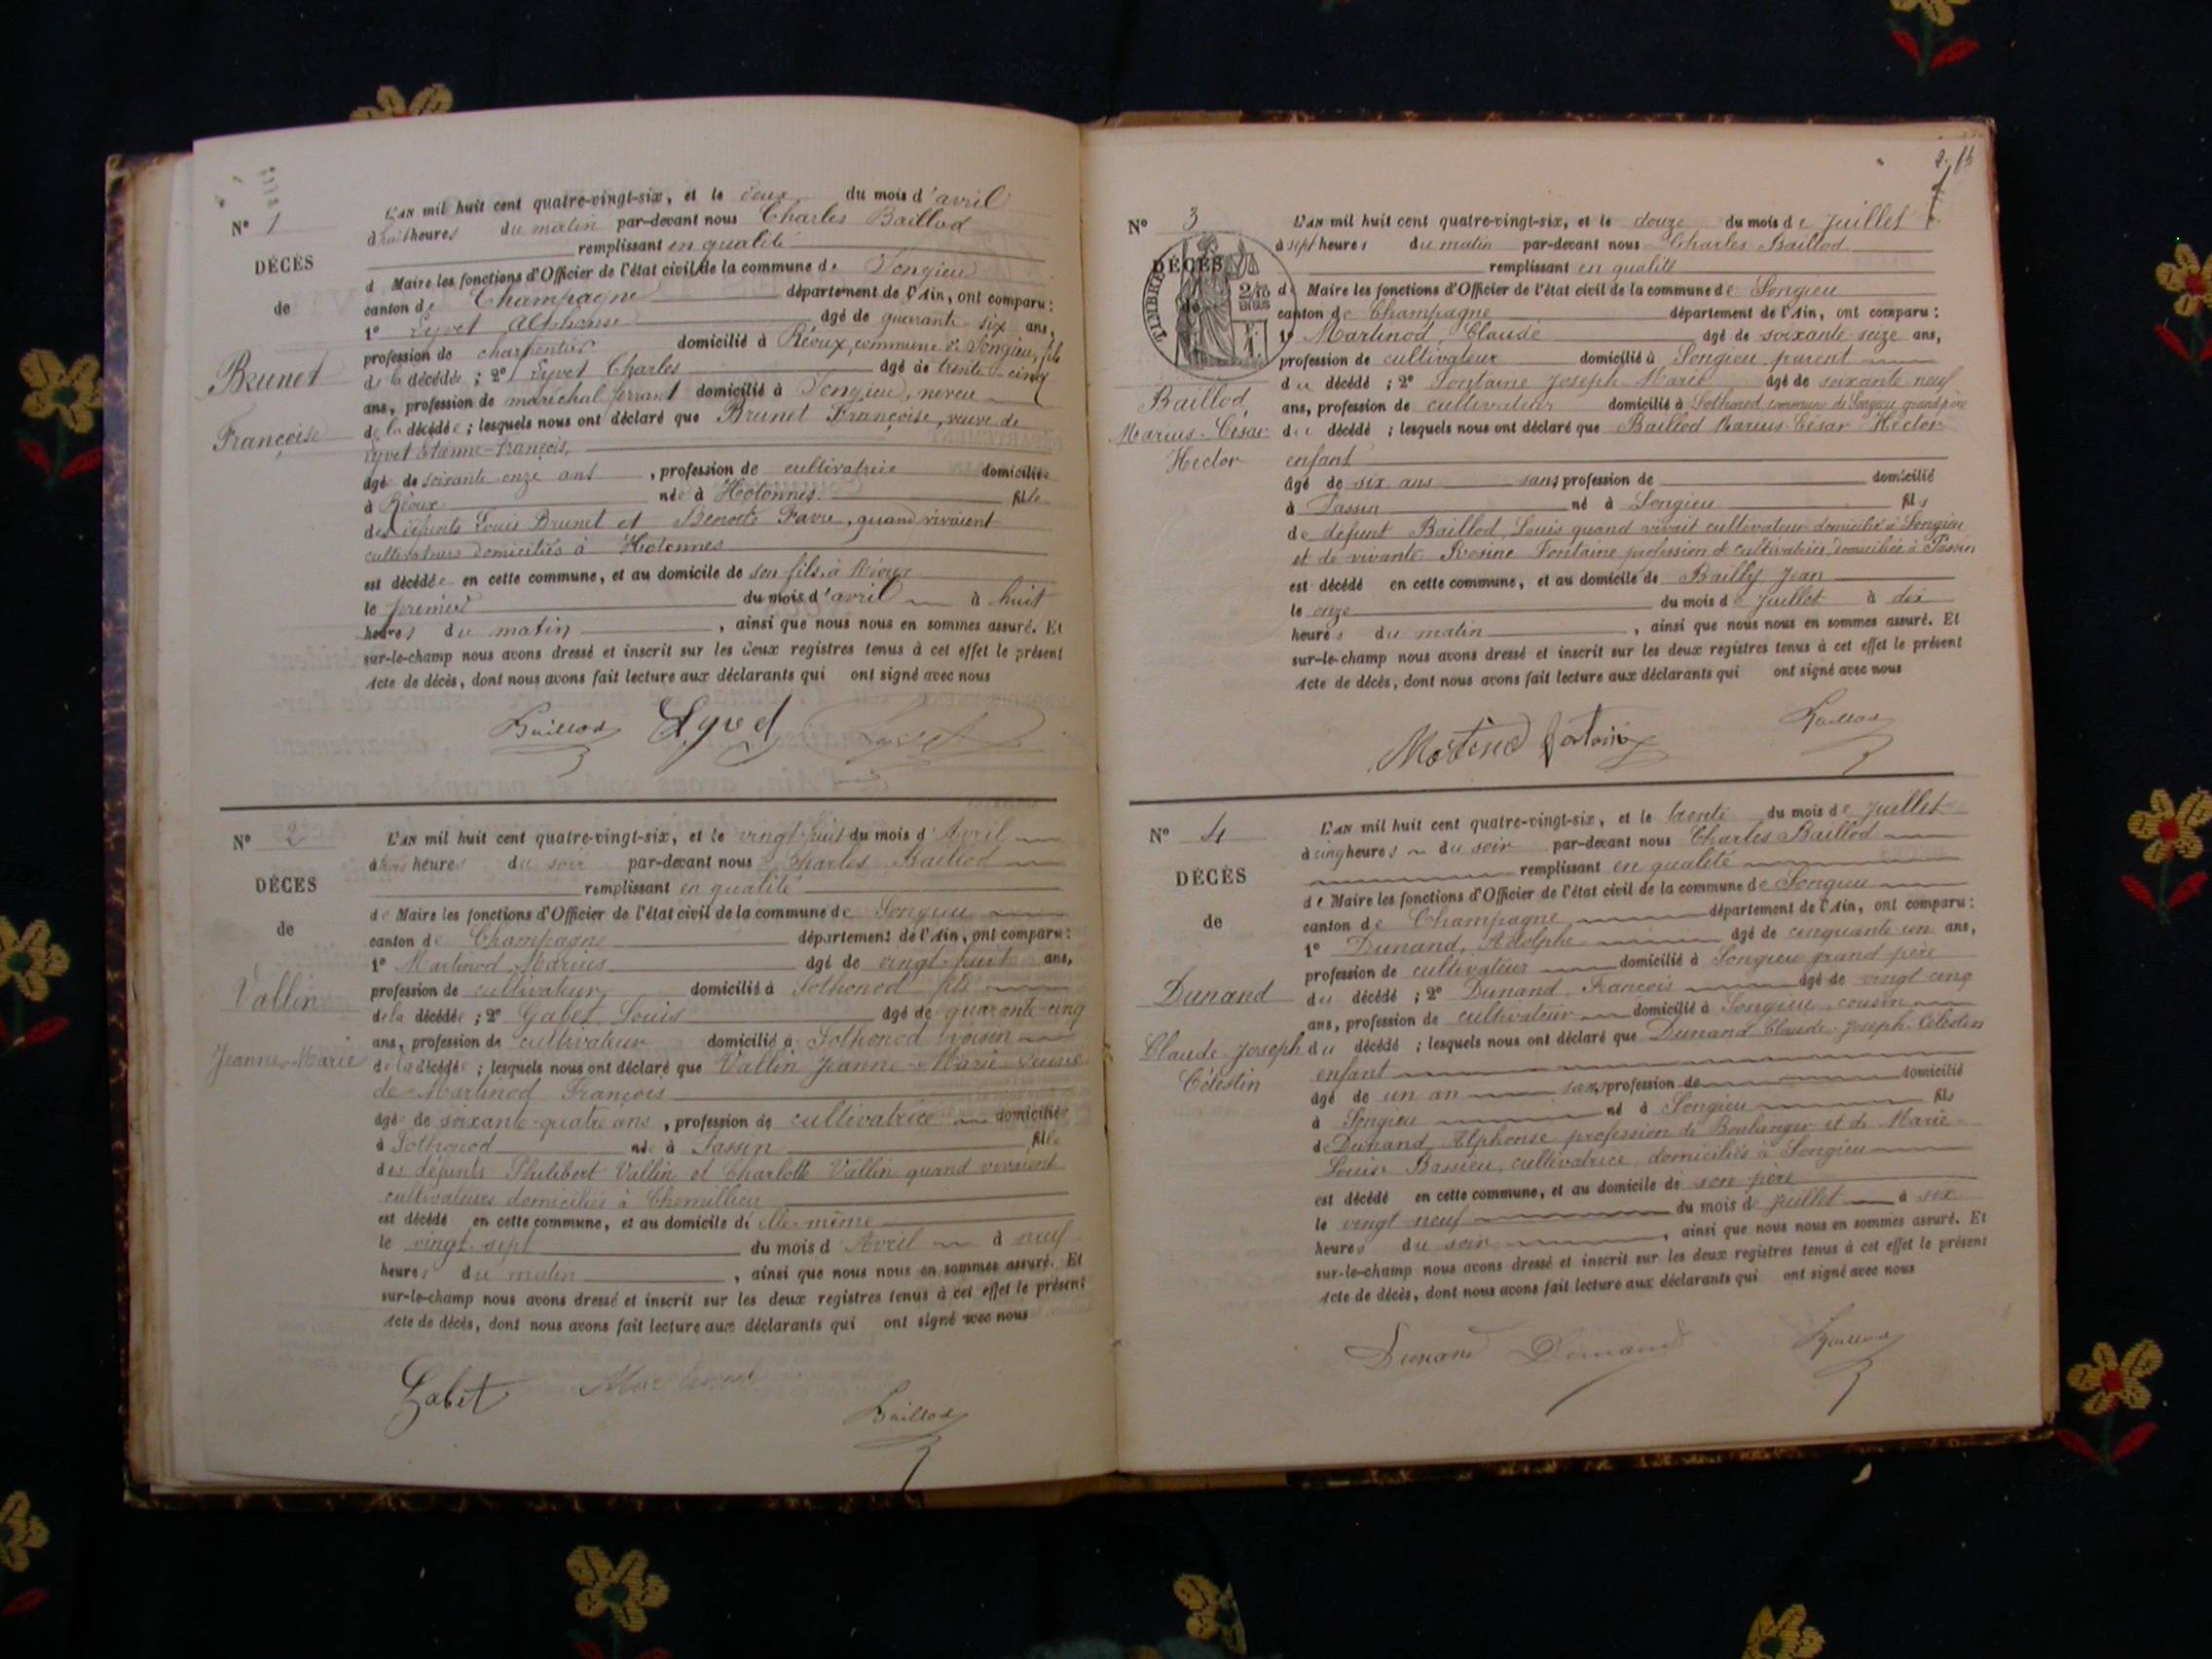 N° 1
DÉCÈS
de
Brunet
Françoise
L'AN mil huit cent quatre-vingt-six, et le deux du mois d'avril
à huit heures du matin par-devant nous Charles Baillod
remplissant en qualité
d Maire les fonctions d'Officier de l'état civil de la commune de Songieu
canton de Champagne département de l'Ain, ont comparu:
1° Lyvet Alphonse âgé de quarante-six ans,
profession de charpentier domicilié à Réoux, commune de Songieu, fils
de la décédée; 2° Lyvet Charles âgé de trente-cinq
ans, profession de maréchal ferrant domicilié à Songieu, neveu
de la décédée; lesquels nous ont déclaré que Brunet Françoise, veuve de
Lyvet Etienne-François,
âgé de soixante onze ans, profession de cultivatrice domiciliée
à Réoux née à Hotonnes fille
des défunts Louis Brunet et Benoite Favre, quand vivaient
cultivateurs domiciliés à Hotonnes
est décédée en cette commune, et au domicile de son fils, à Réoux
le premier du mois d'avril à huit
heures du matin, ainsi que nous nous en sommes assuré. Et
sur-le-champ nous avons dressé et inscrit sur les deux registres tenus à cet effet le présent
Acte de décès, dont nous avons fait lecture aux déclarants qui ont signé avec nous
Baillod Lyvet Lyvet
N° 2
DÉCES
de
Vallin
Jeanne-Marie
L'AN mil huit cent quatre-vingt-six, et le vingt-huit du mois d'Avril
à trois heures du soir par-devant nous Charles Baillod
remplissant en qualité
de Maire les fonctions d'Officier de l'état civil de la commune de Songieu
canton de Champagne département de l'Ain, ont comparu:
1° Martinod Marius âgé de vingt-huit ans,
profession de cultivateur domicilié à Sothonod fils
de la décédée; 2° Gabet Louis âgé de quarante-cinq
ans, profession de cultivateur domicilié à Sothonod voisin
de la décédée; lesquels nous ont déclaré que Vallin Jeanne-Marie veuve
de Martinod François
âgé de soixante-quatre ans, profession de cultivatrice domiciliée
à Sothonod née à Passin fille
des défunts Philibert Vallin et Charlotte Vallin quand vivaient
cultivateurs domiciliés à Chemillieu
est décédé en cette commune, et au domicile de elle-même
le vingt-sept du mois d'Avril à neuf
heures du matin, ainsi que nous nous en sommes assuré. Et
sur-le-champ nous avons dressé et inscrit sur les deux registres tenus à cet effet le présent
Acte de décès, dont nous avons fait lecture aux déclarants qui ont signé avec nous
Gabet Martinod
Baillod
N° 3
DÉCÈS
de
TIMBRE
2/10
EN SUS
Baillod,
Marius-César
Hector
L'AN mil huit cent quatre-vingt-six, et le douze du mois de Juillet
à sept heures du matin par-devant nous Charles Baillod
remplissant en qualité
de Maire les fonctions d'Officier de l'état civil de la commune de Songieu
canton de Champagne département de l'Ain, ont comparu:
1° Martinod, Claude âgé de soixante seize ans,
profession de cultivateur domicilié à Songieu, parent
du décédé; 2° Fontaine Joseph-Marie âgé de soixante neuf
ans, profession de cultivateur domicilié à Sothonod commune de Songieu grand père
du décédé; lesquels nous ont déclaré que Baillod Marius-César-Hector
enfant
âgé de six ans sans profession de domicilié
à Passin né à Songieu fils
de défunt Baillod, Louis quand vivait cultivateur domicilié à Songieu
et de vivante Rosine Fontaine profession de cultivatrice, domiciliée à Passin
est décédé en cette commune, et au domicile de Bailly Jean
le onze du mois de Juillet à dix
heures du matin, ainsi que nous nous en sommes assuré. Et
sur-le-champ nous avons dressé et inscrit sur les deux registres tenus à cet effet le présent
Acte de décès, dont nous avons fait lecture aux déclarants qui ont signé avec nous
Baillod
N° 4
DÉCÈS
de
Dunand
Claude-Joseph
Célestin
L'AN mil huit cent quatre-vingt-six, et le trente du mois de Juillet
à cinq heures du soir par-devant nous Charles Baillod
remplissant en qualité
de Maire les fonctions d'Officier de l'état civil de la commune de Songieu
canton de Champagne, département de l'Ain, ont comparu:
1° Dunand, Adolphe âgé de cinquante-un ans,
profession de cultivateur domicilié à Songieu grand père
du décédé; 2° Dunand, François âgé de vingt cinq
ans, profession de cultivateur domicilié à Songieu, cousin
du décédé; lesquels nous ont déclaré que Dunand Claude-Joseph-Célestin
enfant
âgé de un an sans profession de domicilié
à Songieu né à Songieu fils
de Dunand, Alphonse profession de Boulanger et de Marie-
Louise Bassieu, cultivatrice, domiciliés à Songieu
est décédé en cette commune, et au domicile de son père
le vingt neuf du mois de Juillet à six
heures du soir, ainsi que nous nous en sommes assuré. Et
sur-le-champ nous avons dressé et inscrit sur les deux registres tenus à cet effet le présent
Acte de décès, dont nous avons fait lecture aux déclarants qui ont signé avec nous
Dunand Dunand Baillod